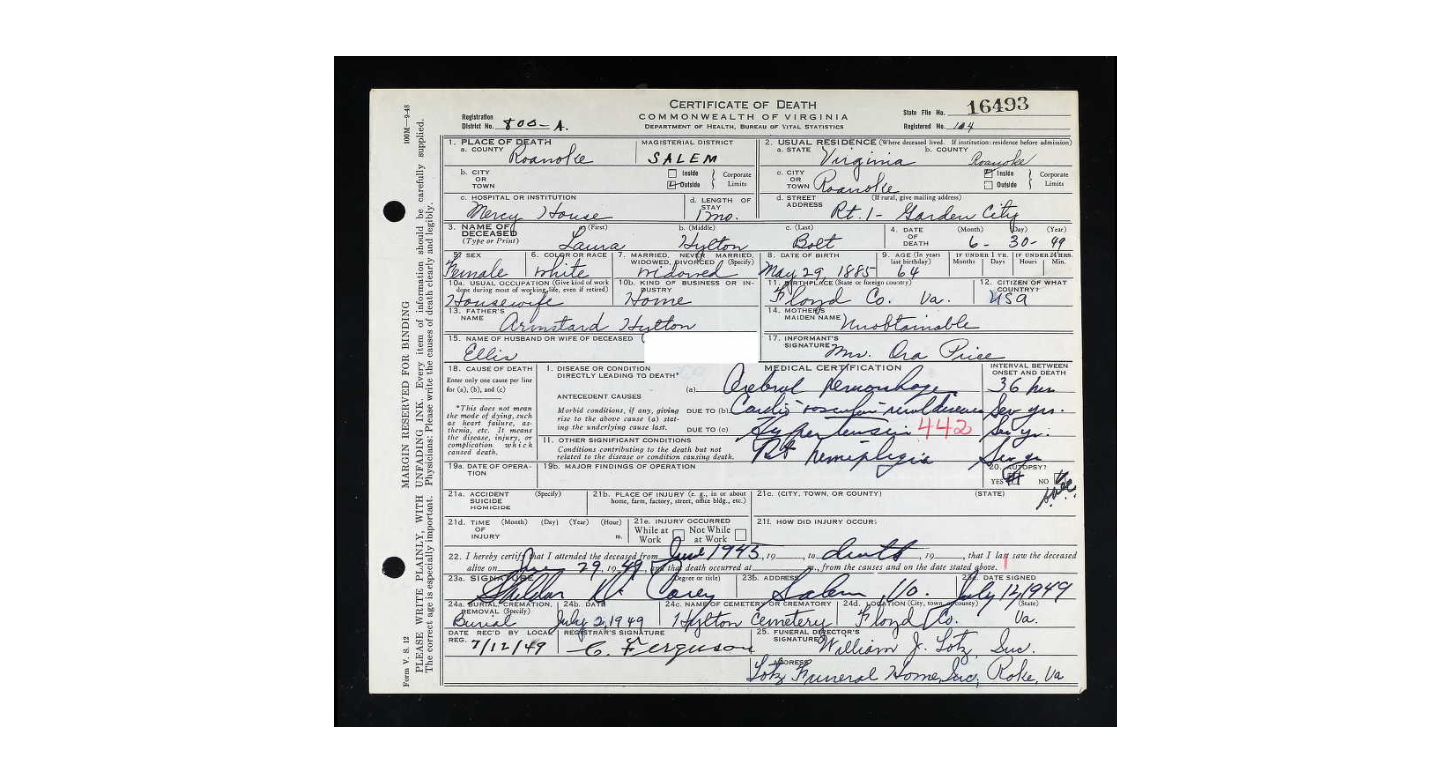 CERTIFICATE OF DEATH
COMMONWEALTH OF VIRGINIA
DEPARTMENT OF HEALTH, BUREAU OF VITAL STATISTICS
Registration District No. 800-A.
State File No. 16493
Registered No. 104
100M—9-48
MARGIN RESERVED FOR BINDING
PLEASE WRITE PLAINLY, WITH UNFADING INK. Every item of information should be carefully supplied.
The correct age is especially important. Physicians: Please write the causes of death clearly and legibly.
Form V. S. 12
1. PLACE OF DEATH
a. COUNTY Roanoke
MAGISTERIAL DISTRICT SALEM
2. USUAL RESIDENCE (Where deceased lived. If institution: residence before admission)
a. STATE Virginia b. COUNTY Roanoke
b. CITY OR TOWN
Inside Outside Corporate Limits
c. CITY OR TOWN Roanoke
Inside Outside Corporate Limits
c. HOSPITAL OR INSTITUTION Mercy House
d. LENGTH OF STAY 1 mo.
d. STREET ADDRESS (If rural, give mailing address) Rt. 1- Garden City
3. NAME OF DECEASED (Type or Print)
(First) Laura b. (Middle) Hylton c. (Last) Bolt
4. DATE OF DEATH (Month) (Day) (Year) 6- 30- 49
5. SEX Female
6. COLOR OR RACE white
7. MARRIED, NEVER MARRIED, WIDOWED, DIVORCED (Specify) widowed
8. DATE OF BIRTH May 29, 1885
9. AGE (In years last birthday) 64
IF UNDER 1 YR. Months Days
IF UNDER 24 HRS. Hours Min.
10a. USUAL OCCUPATION (Give kind of work done during most of working life, even if retired) Housewife
10b. KIND OF BUSINESS OR INDUSTRY Home
11. BIRTHPLACE (State or foreign country) Floyd Co. Va.
12. CITIZEN OF WHAT COUNTRY? USA
13. FATHER'S NAME Armstard Hylton
14. MOTHER'S MAIDEN NAME Unobtainable
15. NAME OF HUSBAND OR WIFE OF DECEASED Ellis
17. INFORMANT'S SIGNATURE Mrs. Ora Price
18. CAUSE OF DEATH
Enter only one cause per line for (a), (b), and (c)
*This does not mean the mode of dying, such as heart failure, asthenia, etc. It means the disease, injury, or complication which caused death.
MEDICAL CERTIFICATION
INTERVAL BETWEEN ONSET AND DEATH
I. DISEASE OR CONDITION DIRECTLY LEADING TO DEATH*
(a) Cerebral hemorrhage 36 hrs
ANTECEDENT CAUSES
Morbid conditions, if any, giving rise to the above cause (a) stating the underlying cause last.
DUE TO (b) Cardio-vascular-renal disease Sev yrs.
DUE TO (c) Hypertension 442 Sev yr.
II. OTHER SIGNIFICANT CONDITIONS
Conditions contributing to the death but not related to the disease or condition causing death.
Rt hemiplegia
19a. DATE OF OPERATION
19b. MAJOR FINDINGS OF OPERATION
20. AUTOPSY?
YES NO
21a. ACCIDENT SUICIDE HOMICIDE (Specify)
21b. PLACE OF INJURY (e. g., in or about home, farm, factory, street, office bldg., etc.)
21c. (CITY, TOWN, OR COUNTY) (STATE)
21d. TIME OF INJURY (Month) (Day) (Year) (Hour) m.
21e. INJURY OCCURRED
While at Work Not While at Work
21f. HOW DID INJURY OCCUR:
22. I hereby certify that I attended the deceased from June 1943, 19 , to death, 19 , that I last saw the deceased
alive on June 29, 1949, and that death occurred at m., from the causes and on the date stated above.
23a. SIGNATURE (Degree or title)
23b. ADDRESS Salem Va.
23c. DATE SIGNED July 12, 1949
24a. BURIAL, CREMATION, REMOVAL (Specify) Burial
24b. DATE July 2, 1949
24c. NAME OF CEMETERY OR CREMATORY Hylton Cemetery
24d. LOCATION (City, town, or county) (State) Floyd Co. Va.
DATE REC'D BY LOCAL REG. 7/12/49
REGISTRAR'S SIGNATURE C. Ferguson
25. FUNERAL DIRECTOR'S SIGNATURE William J. Lotz, Inc.
ADDRESS Lotz Funeral Home, Inc, Roke, Va